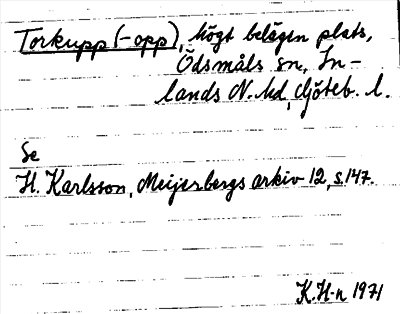 Torkupp (-opp), högt belägen plats,
Ödsmåls sn, In-
lands N. hd, Göteb. l.
Se
H. Karlsson, Meijerbergs arkiv 12, s. 147.
K.H-n 1971